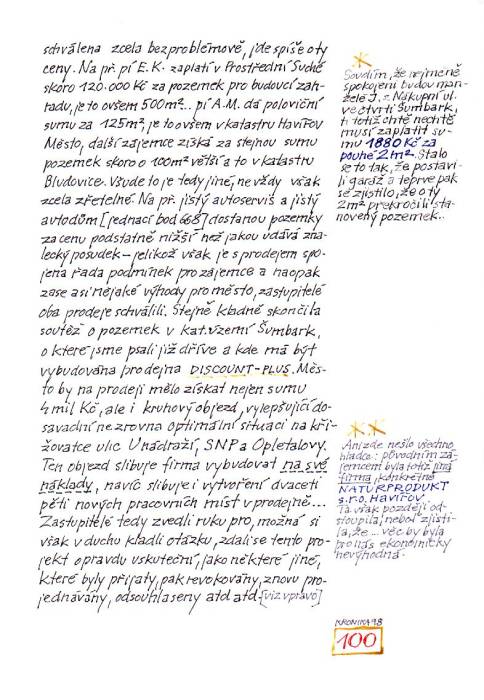 schválena zcela bezproblémově, jde spíše o ty
ceny. Na př. pí E.K. zaplatí v Prostřední Suché
skoro 120.000 Kč za pozemek pro budoucí zah-
radu, je to ovšem 500m².. pí A.M. dá poloviční
sumu za 125m², je to ovšem v katastru Havířov
Město, další zájemce získá za stejnou sumu
pozemek skoro o 100m² větší a to v katastru
Bludovice. Všude to je tedy jiné, ne vždy však
zcela zřetelné. Na př. jistý autoservis a jistý
autodům [jednací bod 668] dostanou pozemky
za cenu podstatně nižší než jakou udává zna-
lecký posudek – jelikož však je s prodejem spo-
jena řada podmínek pro zájemce a naopak
zase asi nějaké výhody pro město, zastupitelé
oba prodeje schválili. Stejně kladně skončila
soutěž o pozemek v kat.území Šumbark,
o které jsme psali již dříve a kde má být
vybudována prodejna DISCOUNT-PLUS. Měs-
to by na prodeji mělo získat nejen sumu
4 mil Kč, ale i kruhový objezd, vylepšující do-
savadní ne zrovna optimální situaci na kři-
žovatce ulic U nádraží, SNP a Opletalovy.
Ten objezd slibuje firma vybudovat na své
náklady, navíc slibuje i vytvoření dvaceti
pěti nových pracovních míst v prodejně...
Zastupitelé tedy zvedli ruku pro, možná si
však v duchu kladli otázku, zdali se tento pro-
jekt opravdu uskuteční, jako některé jiné,
které byly přijaty, pak revokovány, znovu pro-
jednávány, odsouhlaseny atd atd. [viz vpravo]
Soudím, že nejméně
spokojeni budou man-
želé J. z Nákupní ul.
ve čtvrti Šumbark,
ti totiž chtě nechtě
musí zaplatit su-
mu 1880 Kč za
pouhé 2m². Stalo
se to tak, že postavi-
li garáž a teprve pak
se zjistilo, že o ty
2m² překročili sta-
novený pozemek..
Ani zde nešlo všechno
hladce: původním zá-
jemcem byla totiž jiná
firma, konkrétně
NATURPRODUKT
s.r.o. Havířov.
Ta však později od-
stoupila, neboť zjisti-
la, že ... věc by byla
pro nás ekonomicky
nevýhodná.
KRONIKA 98
100